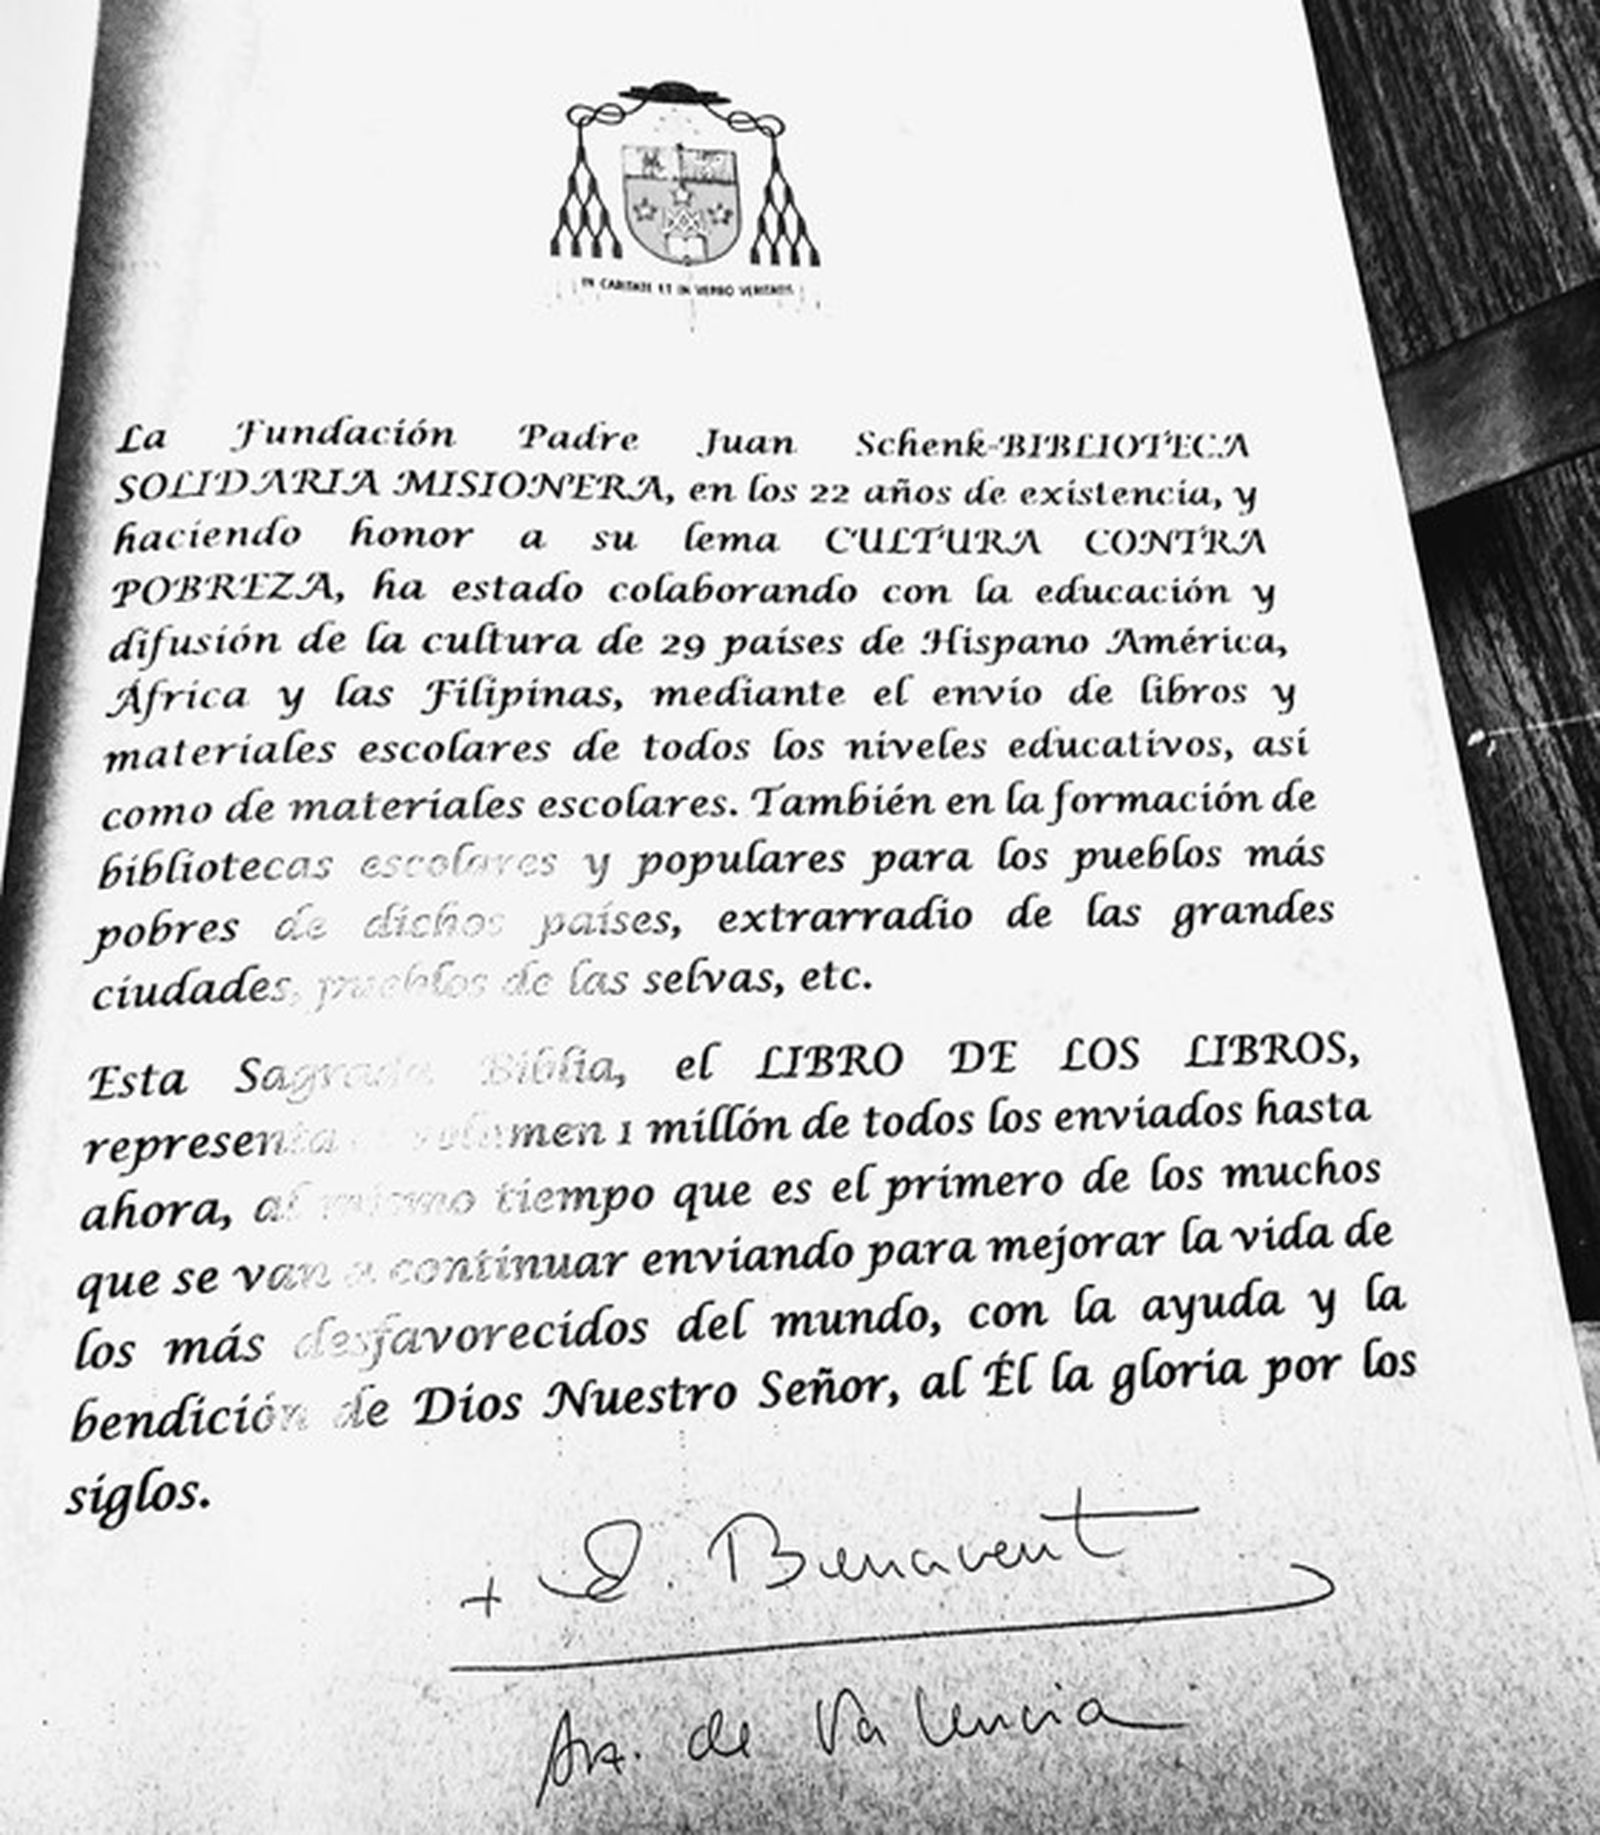 IN CARITATE ET IN VERBO VERITATIS
La Fundación Padre Juan Schenk-BIBLIOTECA
SOLIDARIA MISIONERA, en los 22 años de existencia, y
haciendo honor a su lema CULTURA CONTRA
POBREZA, ha estado colaborando con la educación y
difusión de la cultura de 29 países de Hispano América,
África y las Filipinas, mediante el envío de libros y
materiales escolares de todos los niveles educativos, así
como de materiales escolares. También en la formación de
bibliotecas escolares y populares para los pueblos más
pobres de dichos países, extrarradio de las grandes
ciudades, pueblos de las selvas, etc.
Esta Sagrada Biblia, el LIBRO DE LOS LIBROS,
representa volumen 1 millón de todos los enviados hasta
ahora, al mismo tiempo que es el primero de los muchos
que se van a continuar enviando para mejorar la vida de
los más desfavorecidos del mundo, con la ayuda y la
bendición de Dios Nuestro Señor, al Él la gloria por los
siglos.
+ E. Benavent
de Valencia